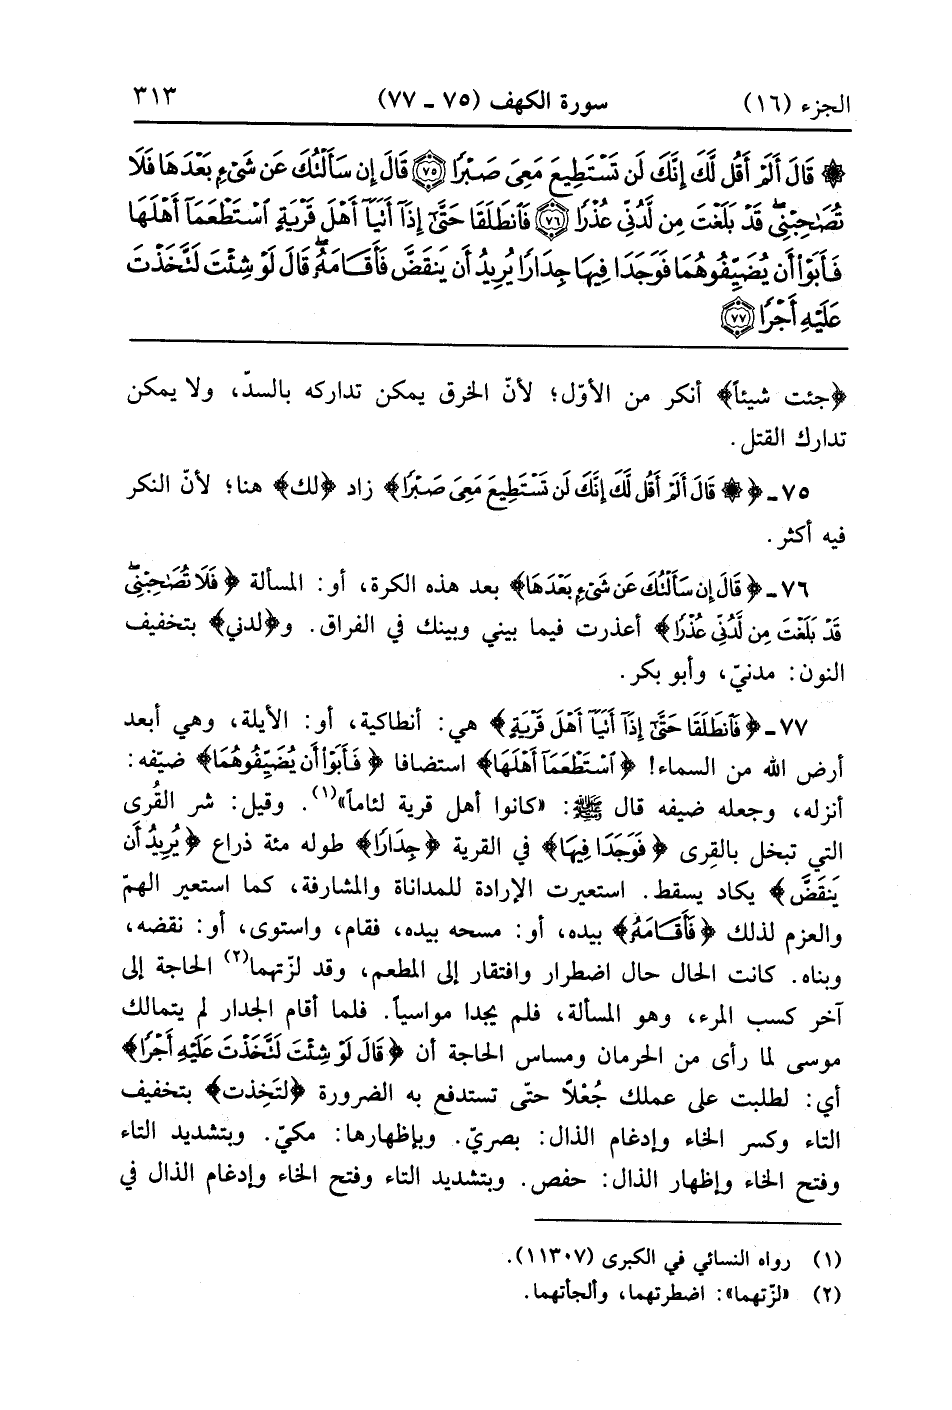 الجزء (١٦) سورة الكهف (٧٥ ـ ٧٧) ٣١٣
۞ قَالَ أَلَمْ أَقُل لَّكَ إِنَّكَ لَن تَسْتَطِيعَ مَعِىَ صَبْرًا ﴿٧٥﴾ قَالَ إِن سَأَلْتُكَ عَن شَىْءٍ بَعْدَهَا فَلَا
تُصَٰحِبْنِىۖ قَدْ بَلَغْتَ مِن لَّدُنِّى عُذْرًا ﴿٧٦﴾ فَٱنطَلَقَا حَتَّىٰٓ إِذَآ أَتَيَآ أَهْلَ قَرْيَةٍ ٱسْتَطْعَمَآ أَهْلَهَا
فَأَبَوْا۟ أَن يُضَيِّفُوهُمَا فَوَجَدَا فِيهَا جِدَارًا يُرِيدُ أَن يَنقَضَّ فَأَقَامَهُۥۖ قَالَ لَوْ شِئْتَ لَتَّخَذْتَ
عَلَيْهِ أَجْرًا ﴿٧٧﴾
﴿جئت شيئاً﴾ أنكر من الأوّل؛ لأنّ الخرق يمكن تداركه بالسدّ، ولا يمكن
تدارك القتل.
٧٥ـ ﴿۞ قَالَ أَلَمْ أَقُل لَّكَ إِنَّكَ لَن تَسْتَطِيعَ مَعِىَ صَبْرًا﴾ زاد ﴿لك﴾ هنا؛ لأنّ النكر
فيه أكثر.
٧٦ـ ﴿قَالَ إِن سَأَلْتُكَ عَن شَىْءٍ بَعْدَهَا﴾ بعد هذه الكرة، أو: المسألة ﴿فَلَا تُصَٰحِبْنِىۖ
قَدْ بَلَغْتَ مِن لَّدُنِّى عُذْرًا﴾ أعذرت فيما بيني وبينك في الفراق. و﴿لدني﴾ بتخفيف
النون: مدنيّ، وأبو بكر.
٧٧ـ ﴿فَٱنطَلَقَا حَتَّىٰٓ إِذَآ أَتَيَآ أَهْلَ قَرْيَةٍ﴾ هي: أنطاكية، أو: الأيلة، وهي أبعد
أرض الله من السماء! ﴿ٱسْتَطْعَمَآ أَهْلَهَا﴾ استضافا ﴿فَأَبَوْا۟ أَن يُضَيِّفُوهُمَا﴾ ضيّفه:
أنزله، وجعله ضيفه قال ﷺ: «كانوا أهل قرية لئاماً»(١). وقيل: شر القُرى
التي تبخل بالقِرى ﴿فَوَجَدَا فِيهَا﴾ في القرية ﴿جِدَارًا﴾ طوله مئة ذراع ﴿يُرِيدُ أَن
يَنقَضَّ﴾ يكاد يسقط. استعيرت الإرادة للمداناة والمشارفة، كما استعير الهمّ
والعزم لذلك ﴿فَأَقَامَهُۥ﴾ بيده، أو: مسحه بيده، فقام، واستوى، أو: نقضه،
وبناه. كانت الحال حال اضطرار وافتقار إلى المطعم، وقد لزّتهما(٢) الحاجة إلى
آخر كسب المرء، وهو المسألة، فلم يجدا مواسياً. فلما أقام الجدار لم يتمالك
موسى لما رأى من الحرمان ومساس الحاجة أن ﴿قَالَ لَوْ شِئْتَ لَتَّخَذْتَ عَلَيْهِ أَجْرًا﴾
أي: لطلبت على عملك جُعْلاً حتّى تستدفع به الضرورة ﴿لتَخِذت﴾ بتخفيف
التاء وكسر الخاء وإدغام الذال: بصريّ. وبإظهارها: مكيّ. وبتشديد التاء
وفتح الخاء وإظهار الذال: حفص. وبتشديد التاء وفتح الخاء وإدغام الذال في
(١) رواه النسائي في الكبرى (١١٣٠٧).
(٢) «لزّتهما»: اضطرتهما، وألجأتهما.